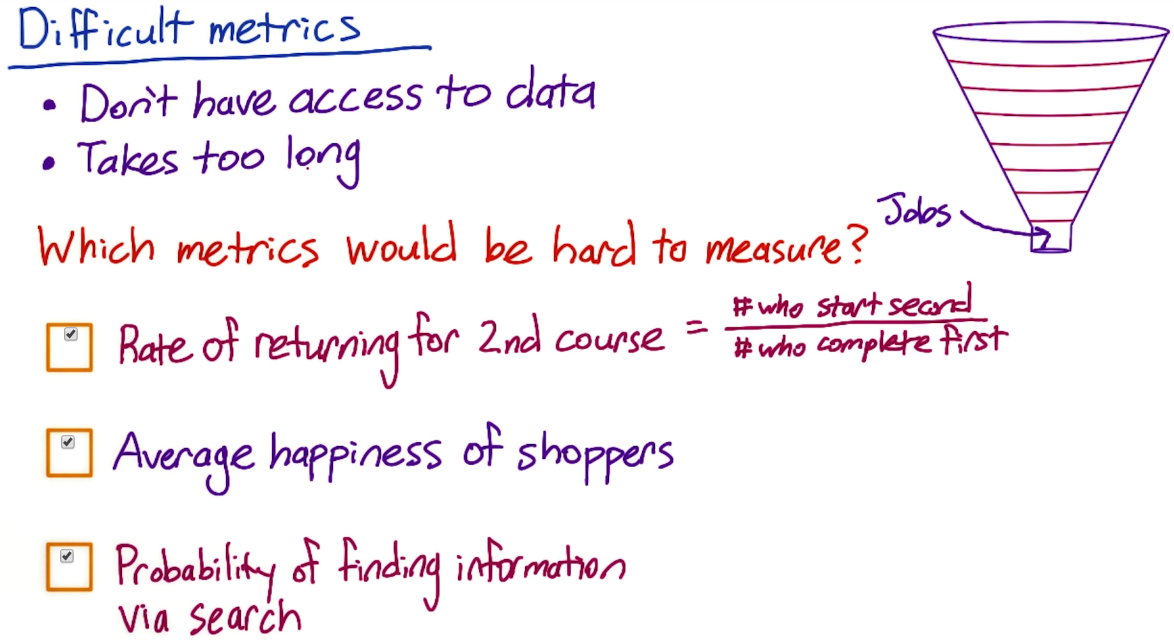 Difficult metrics
• Don't have access to data
• Takes too long
Jobs
Which metrics would be hard to measure?
Rate of returning for 2nd course = #who start second
#who complete first
Average happiness of shoppers
Probability of finding information
via search